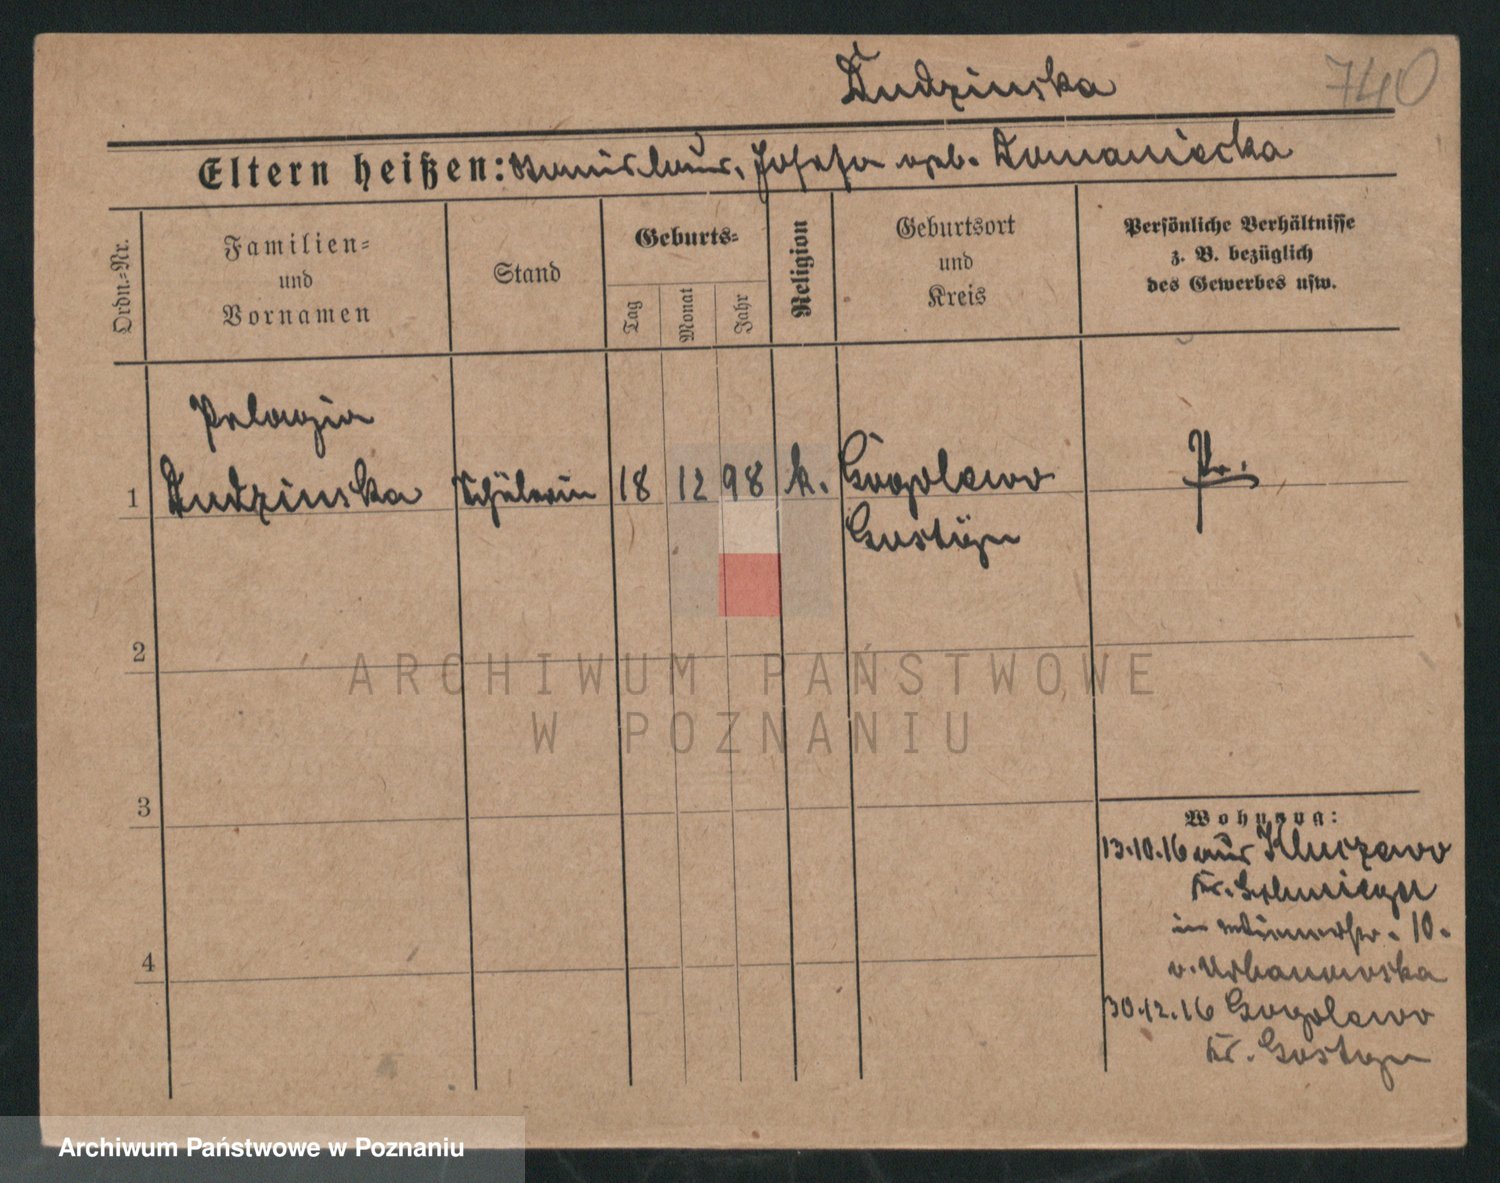 Dudzinska
740
Eltern heißen: Stanislaus, Josefa geb. Domaniecka
Ordn.-Nr.
Familien-
und
Vornamen
Stand
Geburts-
Tag
Monat
Jahr
Religion
Geburtsort
und
Kreis
Persönliche Verhältnisse
z. B. bezüglich
des Gewerbes usw.
Pelagia
1 Dudzinska Schülerin 18 12 98 k. Gogolewo Pr.
Gostÿn
2
3
4
Wohnung:
13.10.16 aus Kluczewo
Kr. Schmiegel
in 10.
v. Urbanowska
30.12.16 Gogolewo
Kr. Gostyn
ARCHIWUM PAŃSTWOWE
W POZNANIU
Archiwum Państwowe w Poznaniu